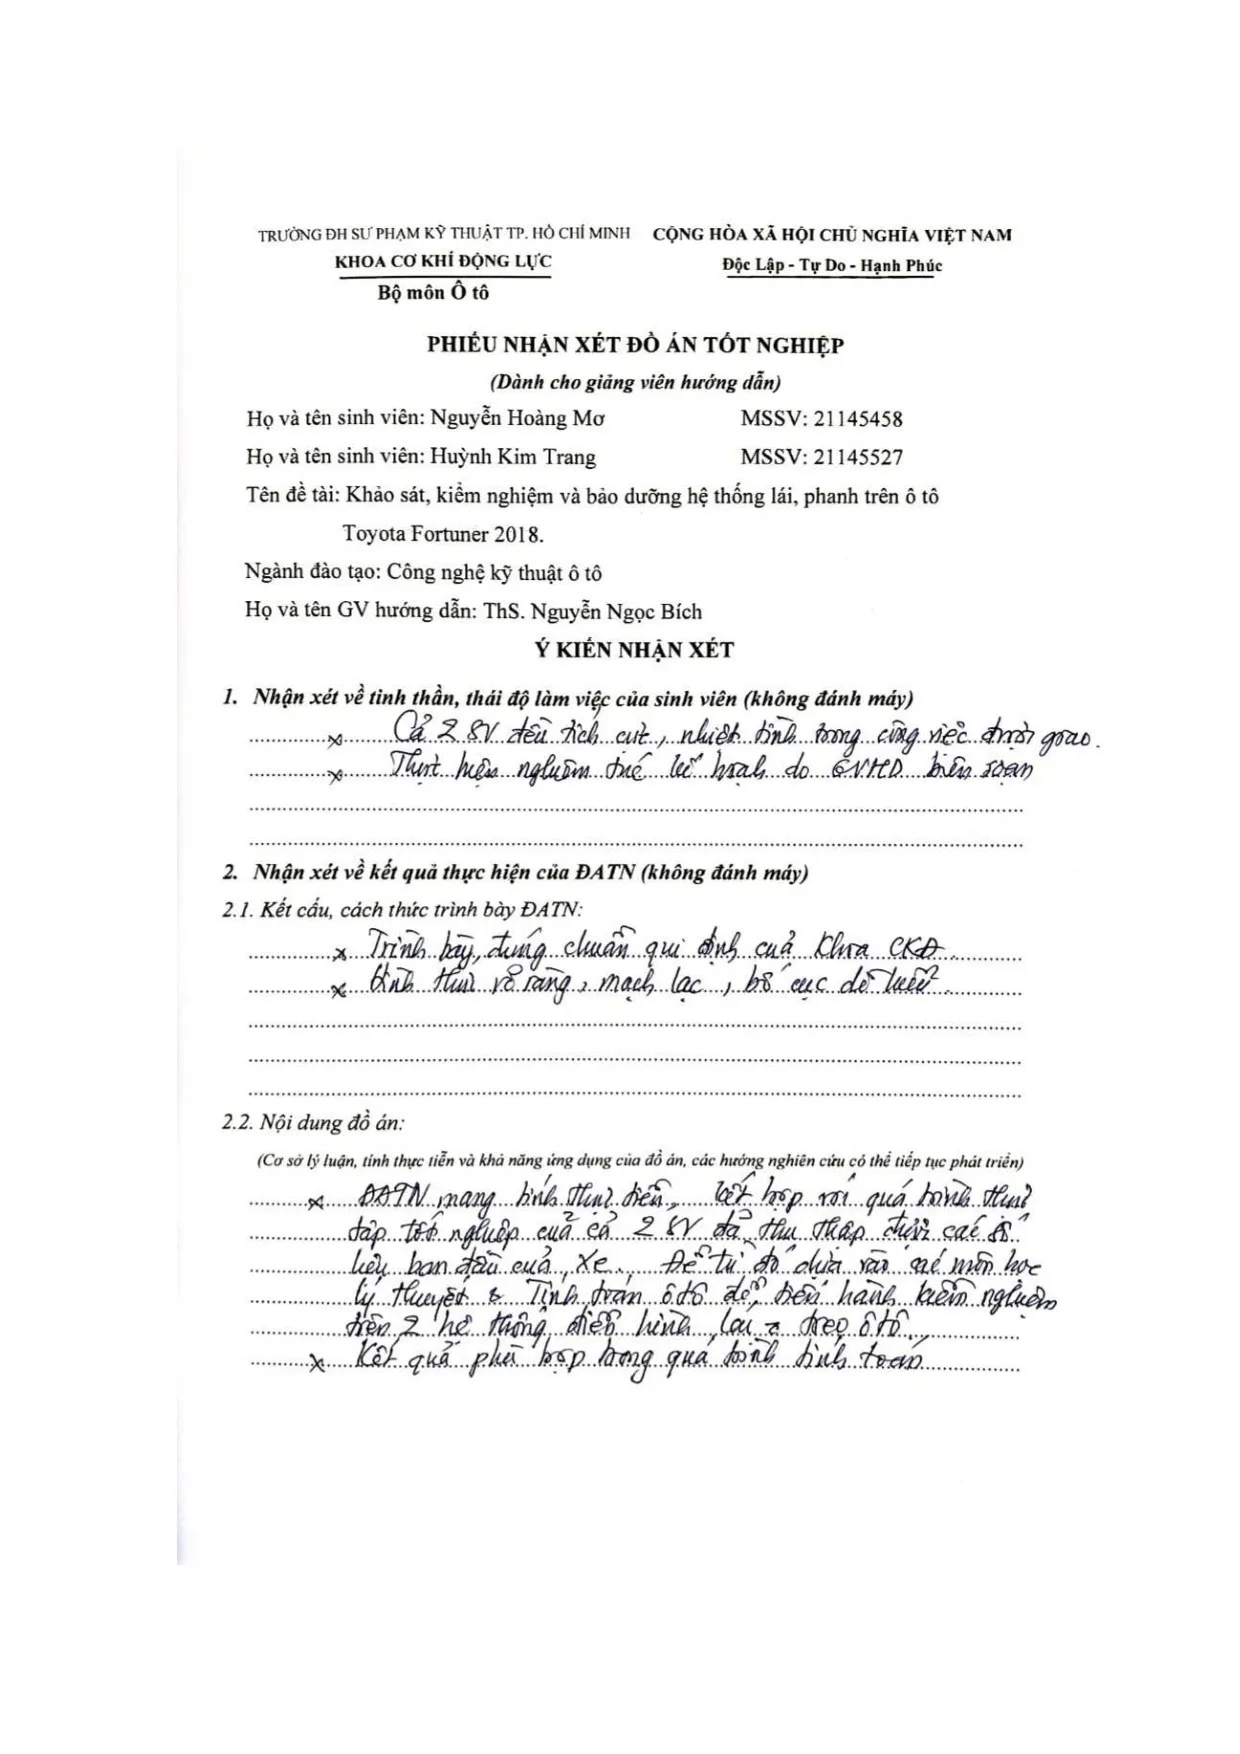 TRƯỜNG ĐH SƯ PHẠM KỸ THUẬT TP. HỒ CHÍ MINH CỘNG HÒA XÃ HỘI CHỦ NGHĨA VIỆT NAM
KHOA CƠ KHÍ ĐỘNG LỰC Độc Lập - Tự Do - Hạnh Phúc
Bộ môn Ô tô
PHIẾU NHẬN XÉT ĐỒ ÁN TỐT NGHIỆP
(Dành cho giảng viên hướng dẫn)
Họ và tên sinh viên: Nguyễn Hoàng Mơ MSSV: 21145458
Họ và tên sinh viên: Huỳnh Kim Trang MSSV: 21145527
Tên đề tài: Khảo sát, kiểm nghiệm và bảo dưỡng hệ thống lái, phanh trên ô tô
Toyota Fortuner 2018.
Ngành đào tạo: Công nghệ kỹ thuật ô tô
Họ và tên GV hướng dẫn: ThS. Nguyễn Ngọc Bích
Ý KIẾN NHẬN XÉT
1. Nhận xét về tinh thần, thái độ làm việc của sinh viên (không đánh máy)
x Cả 2 SV đều tích cực, nhiệt tình trong công việc được giao.
x Thực hiện nghiêm túc kế hoạch do GVHD biên soạn
2. Nhận xét về kết quả thực hiện của ĐATN (không đánh máy)
2.1. Kết cấu, cách thức trình bày ĐATN:
x Trình bày đúng chuẩn qui định của Khoa CKĐ.
x Hình thức rõ ràng, mạch lạc, bố cục dễ hiểu.
2.2. Nội dung đồ án:
(Cơ sở lý luận, tính thực tiễn và khả năng ứng dụng của đồ án, các hướng nghiên cứu có thể tiếp tục phát triển)
x ĐATN mang tính thực tiễn, kết hợp với quá trình thực
tập tốt nghiệp của cả 2 SV đã thu thập được các số
liệu ban đầu của xe. Để từ đó dựa vào các môn học
lý thuyết & Tính toán ô tô để tiến hành kiểm nghiệm
trên 2 hệ thống điển hình lái treo ô tô.
x Kết quả phù hợp trong quá trình tính toán